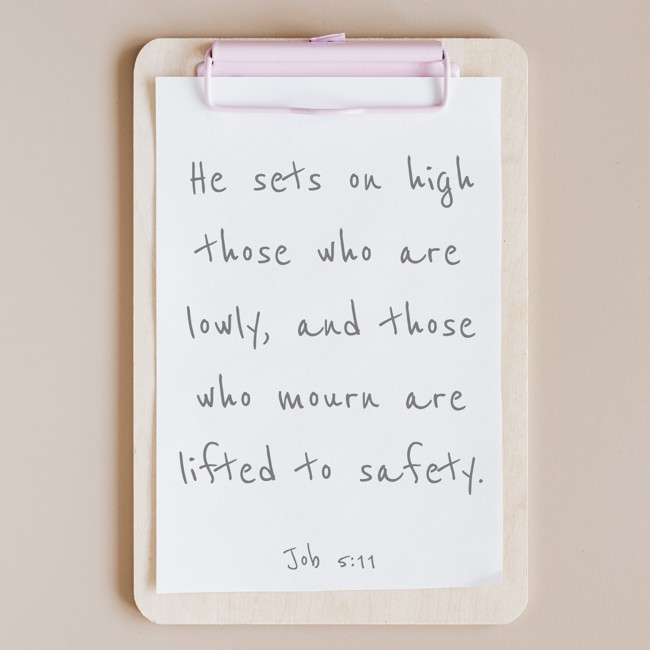 He sets on high
those who are
lowly, and those
who mourn are
lifted to safety.
Job 5:11